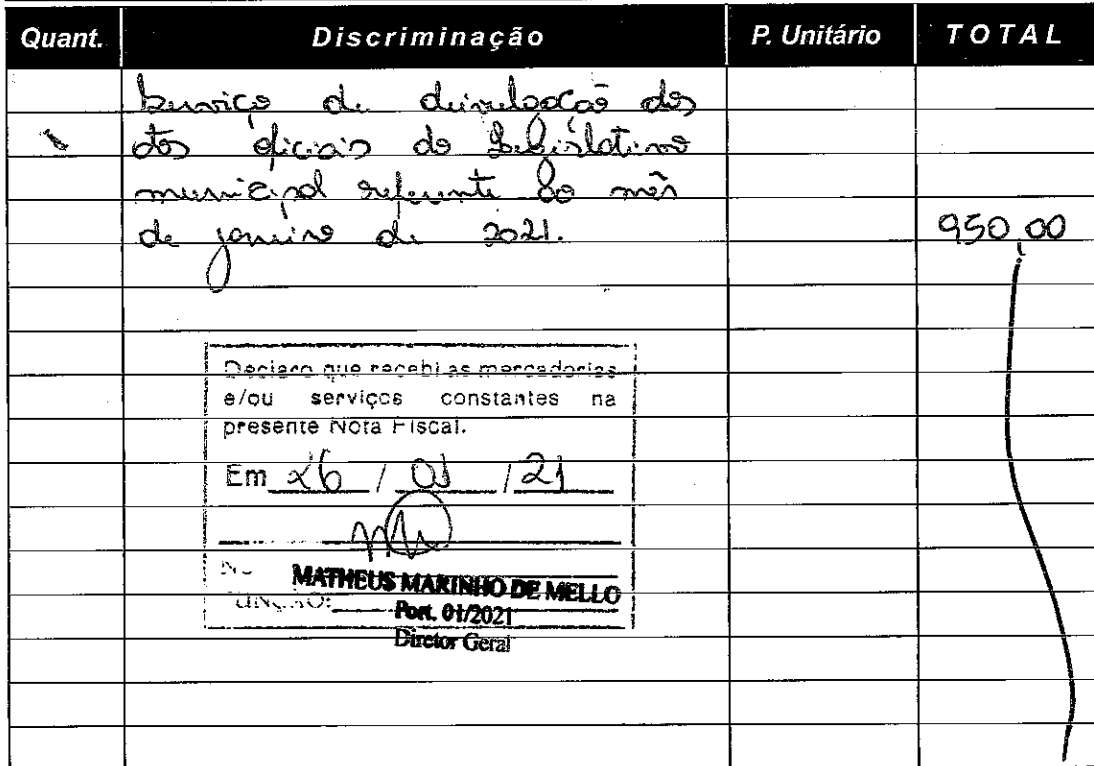 Quant. Discriminação P. Unitário TOTAL
Serviço de divulgação dos
atos oficiais do Legislativo
municipal referente ao mês
de janeiro de 2021. 950,00
Declaro que recebi as mercadorias
e/ou serviços constantes na
presente Nota Fiscal.
Em 26 / 01 / 21
MATHEUS MARINHO DE MELLO
FUNÇÃO:
Port. 01/2021
Diretor Geral